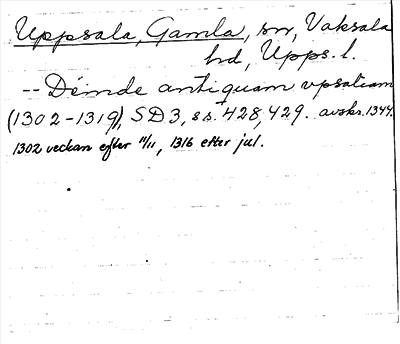 Uppsala, Gamla, sn, Vaksala
hd, Upps. l.
-- Deinde antiquam vpsaliam
(1302-1319), SD3, ss. 428, 429. avskr. 1344.
1302 veckan efter 11/11, 1316 efter jul.